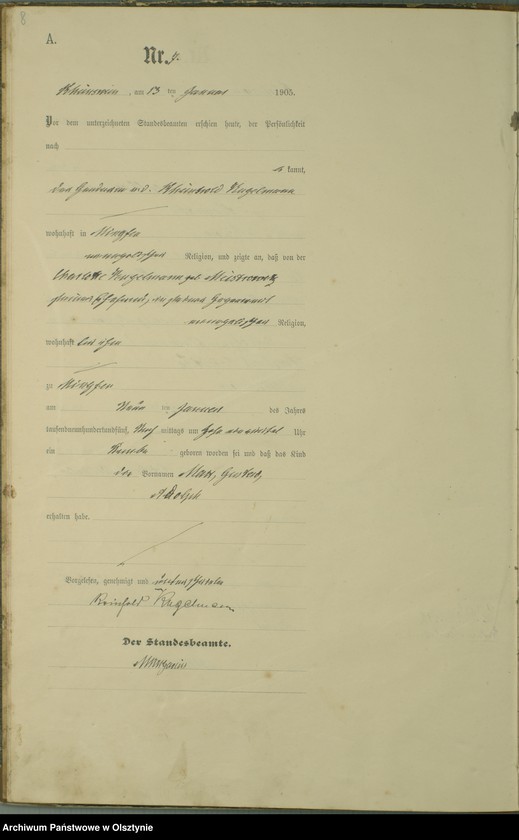 8
A.
Nr.
Rheinswein, am 13 ten Januar 1905.
Vor dem unterzeichneten Standesbeamten erschien heute, der Persönlichkeit
nach
kannt,
Reinhold Kugelmann
wohnhaft in
evangelischer Religion, und zeigte an, daß von der
Charlotte Kugelmann geb.
seiner Ehefrau, in seiner Gegenwart
evangelischer Religion,
wohnhaft bei ihm
zu
am ten Januar des Jahres
tausendneunhundertfünf, mittags um Uhr
ein Knabe geboren worden sei und daß das Kind
die Vornamen Max, Gustav,
Adolph
erhalten habe.
Vorgelesen, genehmigt und unterschrieben
Reinhold Kugelmann
Der Standesbeamte.
Archiwum Państwowe w Olsztynie